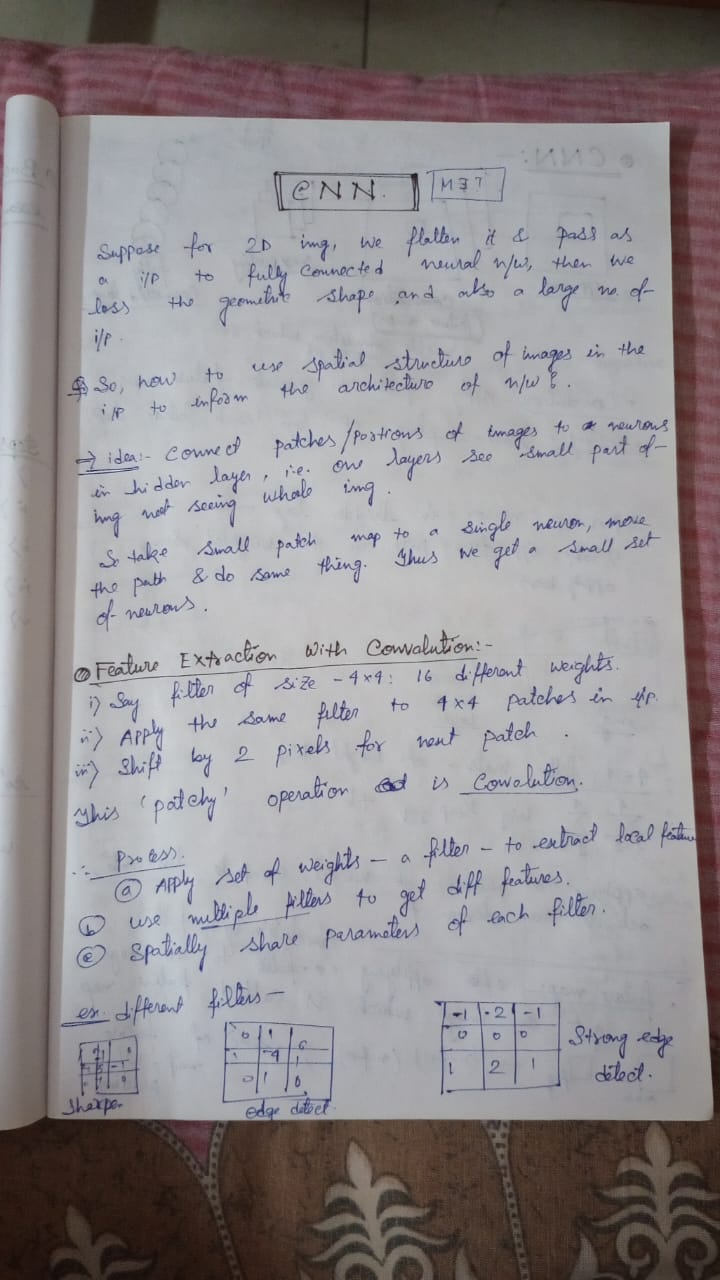 CNN. M3?
Suppose for 2D img, we flatten it & pass as
a i/p to fully connected neural n/w, then we
loss the geometric shape and also a large no. of
i/p.
So, how to use spatial structure of images in the
i/p to inform the architecture of n/w?
→ idea:- connect patches/portions of images to neurons
in hidden layer, i.e. one layers see small part of
img not seeing whole img.
So take small patch map to a single neuron, move
the path & do same thing. Thus we get a small set
of neurons.
Feature Extraction With Convalution:-
i) Say filter of size - 4x4: 16 different weights.
ii) Apply the same filter to 4x4 patches in i/p.
iii) Shift by 2 pixels for next patch.
This 'patchy' operation is Covolution.
∴ Process.
(a) Apply set of weights - a filter - to extract local feature
(b) use multiple filters to get diff features.
(c) Spatially share parameters of each filter.
ex. different filters -
0 1 0
1 -4 1
0 1 0
-1 -2 -1
0 0 0
1 2 1
Strong edge
detect.
Sharpen
edge detect.